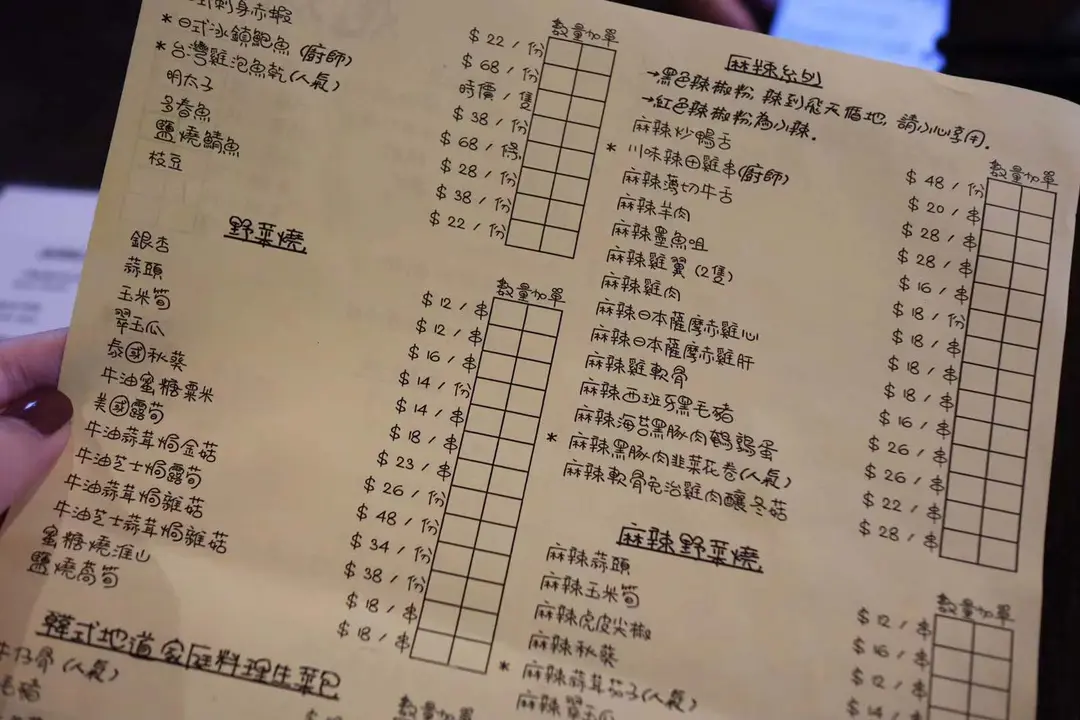 式刺身赤蝦 $68/份
$22/份 數量加單
*日式冰鎮鮑魚(廚師) 時價/隻
*台灣雞泡魚乾(人氣) $38/份
明太子 $68/條
多春魚 $28/份
鹽燒鯖魚 $38/份
枝豆 $22/份
野菜燒
數量加單
銀杏 $12/串
蒜頭 $12/串
玉米筍 $16/串
翠玉瓜 $14/份
泰或秋葵 $14/串
牛油蜜糖粟米 $18/串
美或露筍 $23/串
牛油蒜茸焗金菇 $26/份
牛油芝士焗露筍 $48/份
牛油蒜茸焗雜菇 $34/份
牛油芝士蒜茸焗雜菇 $38/份
蜜糖燒淮山 $18/串
鹽燒萵筍 $18/串
韓式地道家庭料理生菜包
數量加單
牛仔骨(人氣)
毛豬
麻辣系列
→黑色辣椒粉,辣到飛天遁地,請小心享用.
→紅色辣椒粉,為小辣.
數量加單
麻辣炒鴨舌 $48/份
*川味辣田雞串(廚師) $20/串
麻辣薄切牛舌 $28/串
麻辣羊肉 $28/串
麻辣墨魚咀 $16/串
麻辣雞翼(2隻) $18/份
麻辣雞肉 $18/串
麻辣日本薩摩赤雞心 $18/串
麻辣日本薩摩赤雞肝 $18/串
麻辣雞軟骨 $16/串
麻辣西班牙黑毛豬 $26/串
麻辣海苔黑豚肉鵪鶉蛋 $26/串
*麻辣黑豚肉韮菜花卷(人氣) $22/串
麻辣軟骨免治雞肉釀冬菇 $28/串
麻辣野菜燒
數量加單
麻辣蒜頭 $12/串
麻辣玉米筍 $16/串
麻辣虎皮尖椒 $12/串
麻辣秋葵 $14/串
*麻辣蒜茸茄子(人氣)
麻辣翠玉瓜